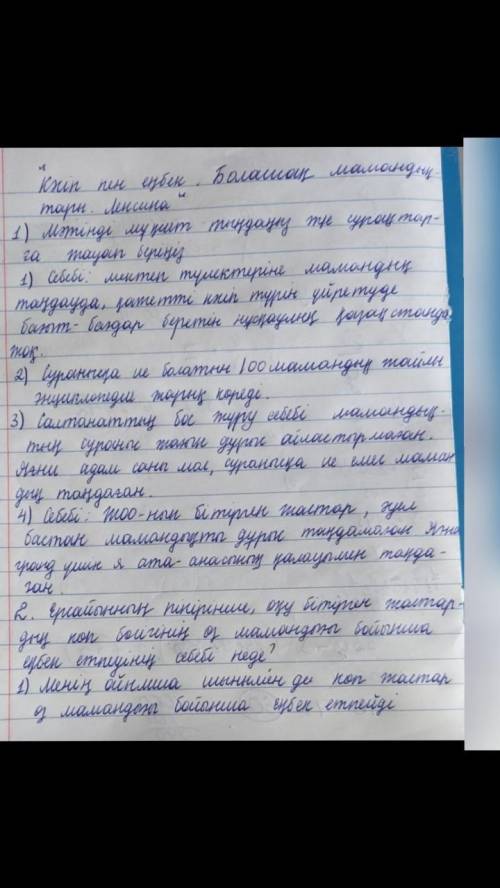 "Кәсіп пен еңбек. Болашақ мамандық-
тары.
1) Мәтінді мұқият тыңдаңыз және сұрақтар-
ға жауап беріңіз
1) Себебі: мектеп түлектеріне мамандық
таңдауда, қажетті кәсіп түрін үйретуде
бағыт-бағдар беретін нұсқаулық қазақстанда
жоқ.
2) Сұранысқа ие болатын 100 мамандық жайлы
энциклопедия жарық көреді.
3) Салтанаттың бос жүру себебі мамандық-
тың сұраныс жағын дұрыс айластырмаған.
Яғни адам саны мол, сұранысқа ие емес маман
дық таңдаған.
4) Себебі: ЖОО-нын бітірген жастар, әуел
бастан мамандықты дұрыс таңдамаған Яғни
гранд үшін я ата-анасының қалауымен таңда-
ған.
2. Ерсайынның пікірінше, оқу бітірген жастар-
дың көп бөлігінің өз мамандығы бойынша
еңбек етпеуінің себебі неде?
1) Менің ойымша шынымен де көп жастар
өз мамандығы бойынша еңбек етпейді